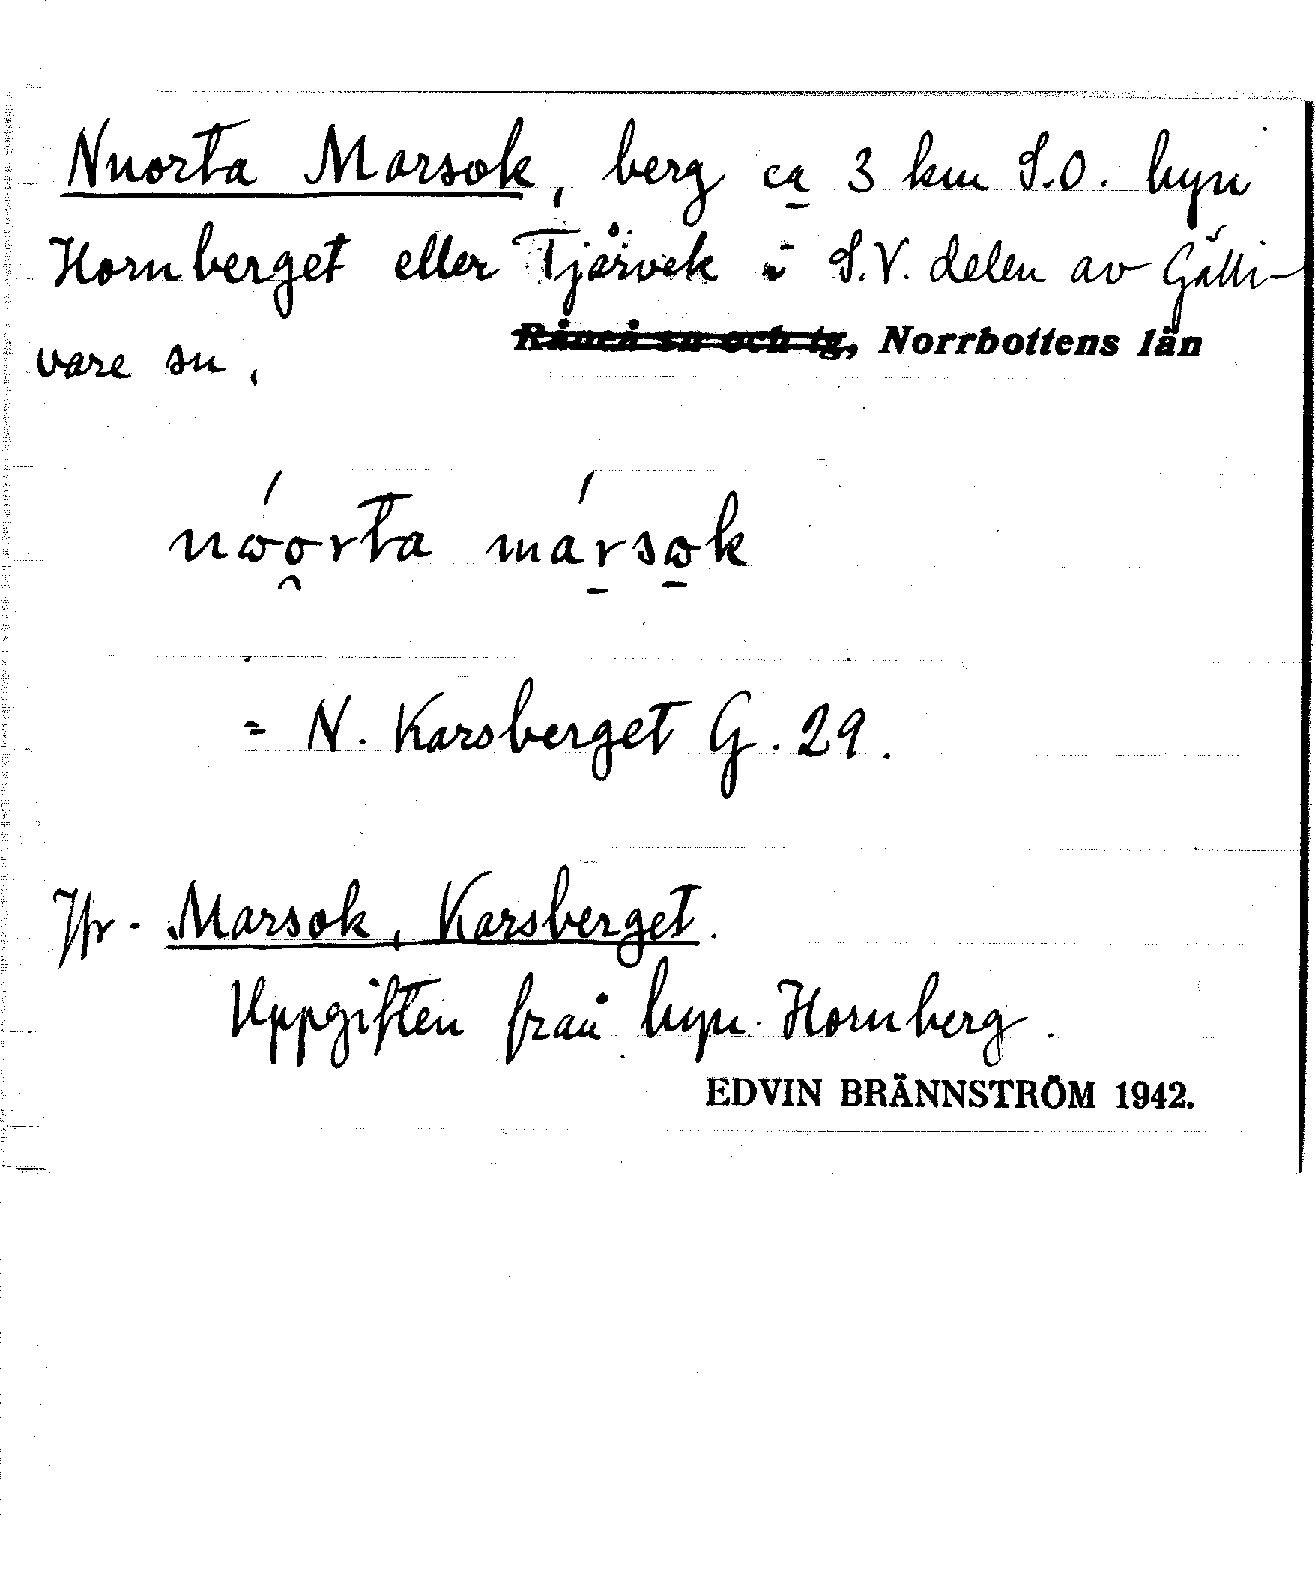 Nuorta Marsok, berg ca 3 km S.O. byn
Hornberget eller Tjårvek i S.V. delen av Gälli-
vare sn,
Råneå sn och tg, Norrbottens län
nωo̯rta mársω̱k
= N. Karsberget G. 29.
Jfr. Marsok, Karsberget.
Uppgiften från byn Hornberg.
EDVIN BRÄNNSTRÖM 1942.